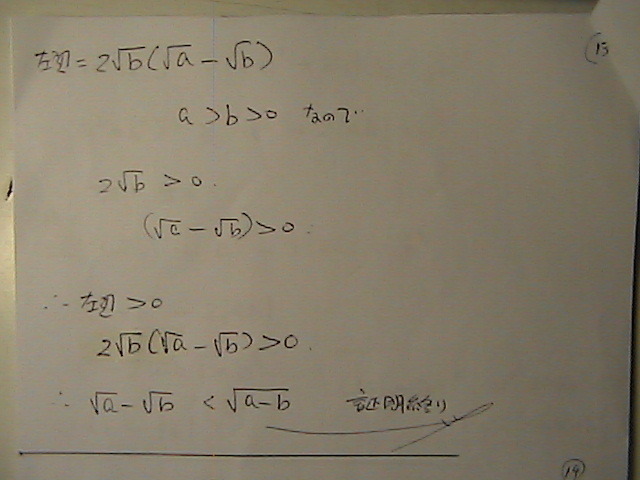 (13
左辺 = 2√b(√a − √b)
a > b > 0 なので‥
2√b > 0.
(√a − √b) > 0.
∴ 左辺 > 0
2√b(√a − √b) > 0.
∴ √a − √b < √(a−b) 証明終り
(14)